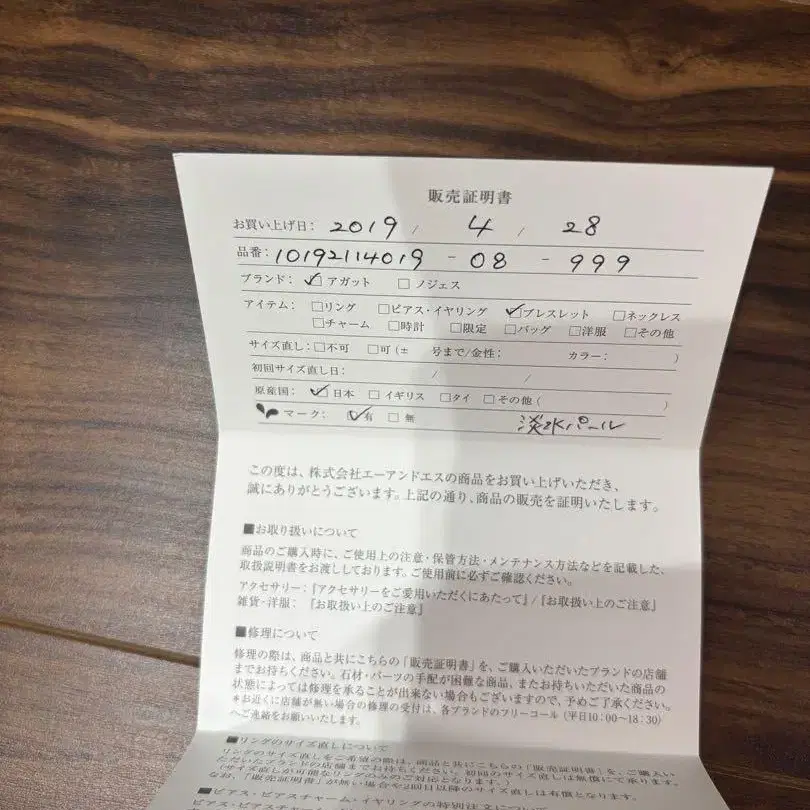 販売証明書
お買い上げ日: 2019 / 4 / 28
品番: 10192114019 - 08 - 999
ブランド: ☑アガット □ノジェス
アイテム: □リング □ピアス・イヤリング ☑ブレスレット □ネックレス
□チャーム □時計 □限定 □バッグ □洋服 □その他
サイズ直し: □不可 □可(± 号まで/金性: カラー: )
初回サイズ直し日: / /
原産国: ☑日本 □イギリス □タイ □その他( )
マーク: ☑有 □無 淡水パール
この度は、株式会社エーアンドエスの商品をお買い上げいただき、
誠にありがとうございます。上記の通り、商品の販売を証明いたします。
■お取り扱いについて
商品のご購入時に、ご使用上の注意・保管方法・メンテナンス方法などを記載した、
取扱説明書をお渡ししております。ご使用前に必ずご確認ください。
アクセサリー:『アクセサリーをご愛用いただくにあたって』/『お取扱い上のご注意』
雑貨・洋服: 『お取扱い上のご注意』
■修理について
修理の際は、商品と共にこちらの「販売証明書」を、ご購入いただいたブランドの店舗
までお持ちください。石材・パーツの手配が困難な商品、またお持ちいただいた商品の
状態によっては修理を承ることが出来ない場合もございますので、予めご了承ください。
*お近くに店舗が無い場合の修理の受付は、各ブランドのフリーコール(平日10:00~18:30)
へご連絡をお願いいたします。
■リングのサイズ直しについて
リングのサイズ直しをご希望の際は、商品と共にこちらの「販売証明書」を、ご購入い
ただいたブランドの店舗までお持ちください。初回のサイズ直しは無償にて承ります。
(サイズ直しが可能なリングのみのご対応となります。)
なお、「販売証明書」が無い場合や2回目以降のサイズ直しは有償となります。
■ピアス・ピアスチャーム・イヤリングの特別注文について